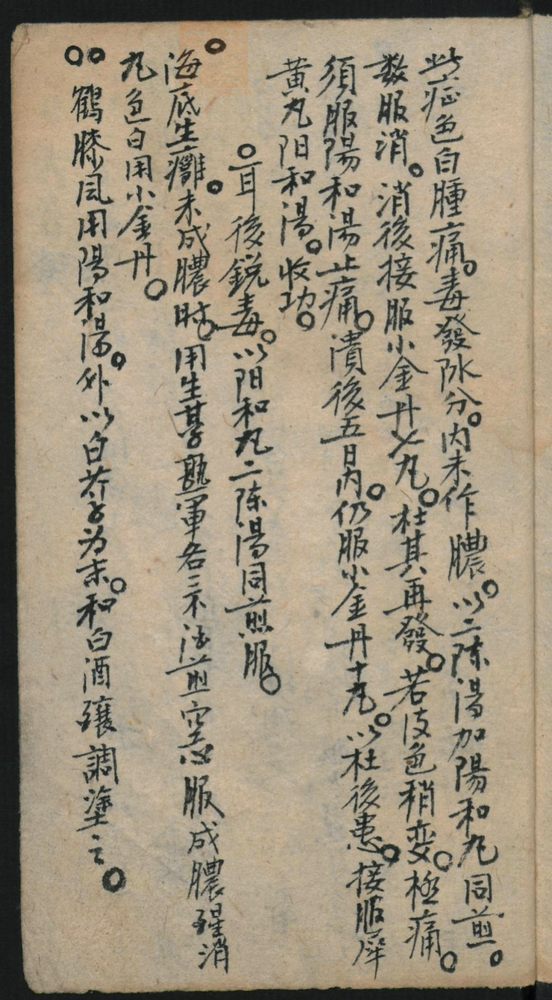 此症色白腫痛。毒發分。内未作膿。以二陳湯加陽和丸同煎。
数服消。消後接服小金丹七丸。杜其再發。若皮色稍变。極痛。
須服陽和湯止痛。潰後五日内。仍服小金丹十丸。以杜後患。接服犀
黄丸阳和湯。收功。
。耳後銳毒。以阳和丸二陈湯同煎服。
。海底生癰。未成膿时。用生草熟軍各三酒煎空心服成膿醒消
丸色白用小金丹。
。。鶴膝风用陽和湯。外以白芥子为末。和白酒釀調塗之。